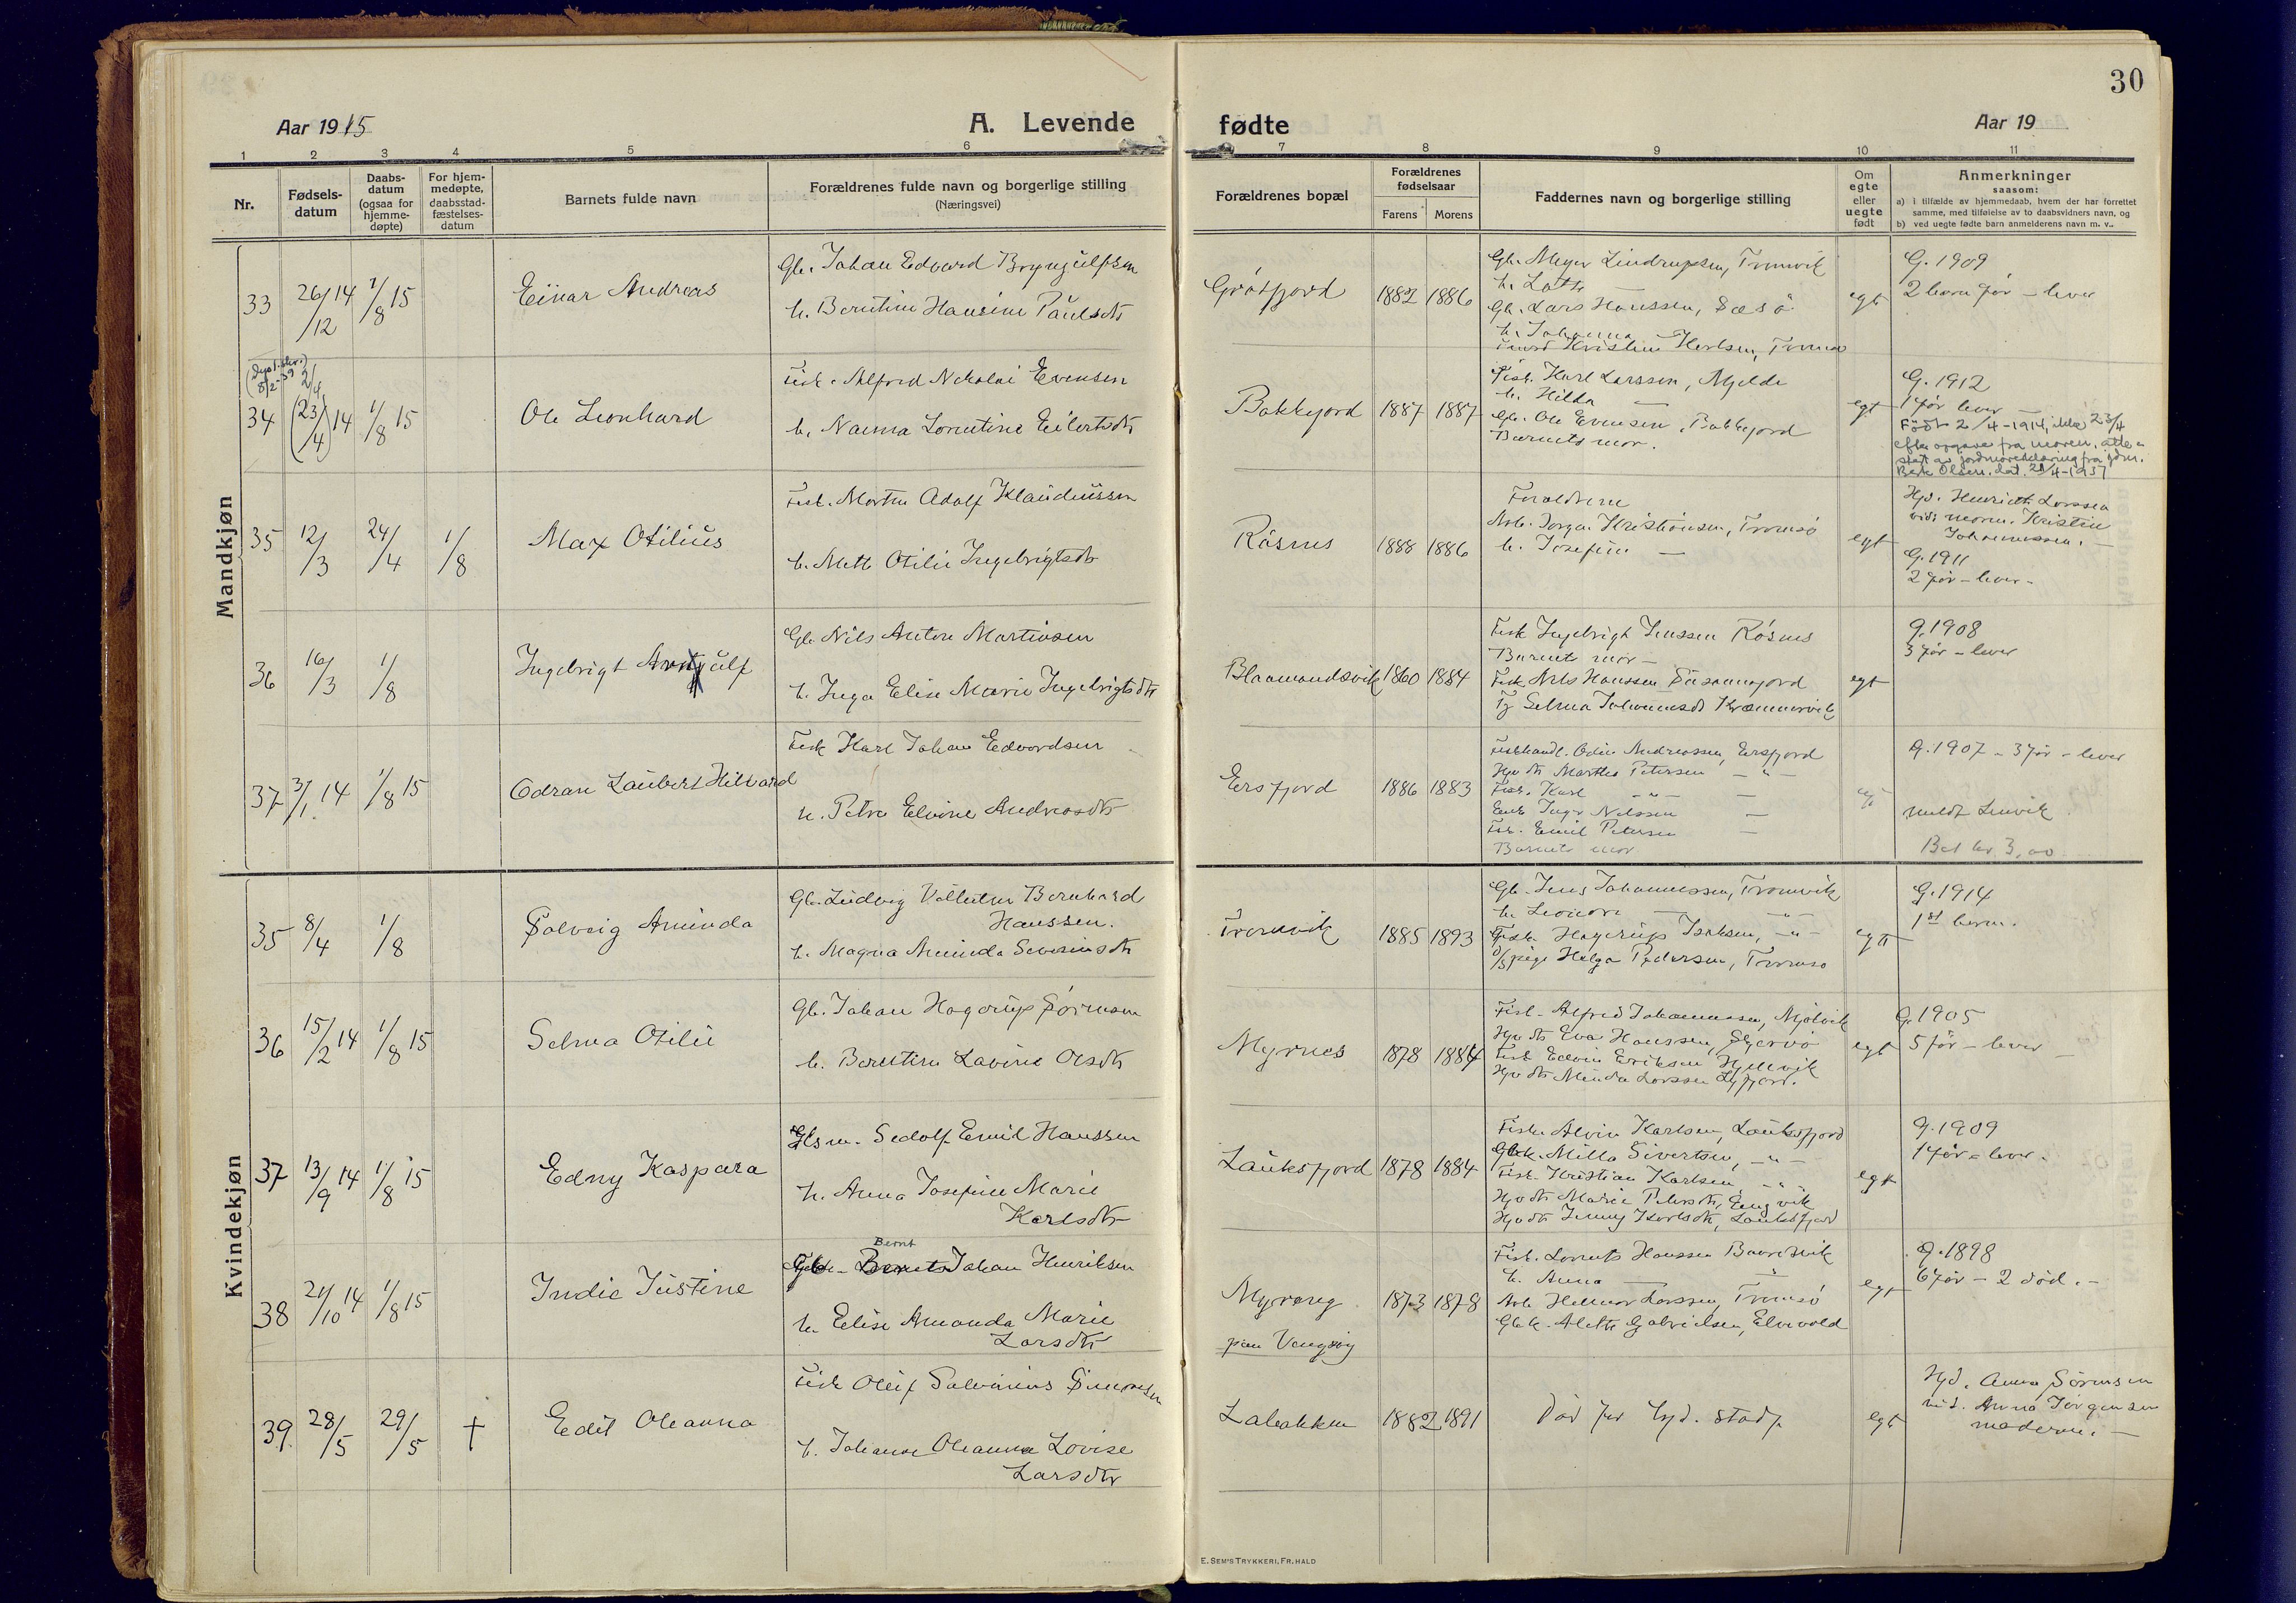 30
Aar 1915
A. Levende
fødte
Aar 19
1 2 3 4 5 6 7 8 9 10 11
Nr.
Fødsels-
datum
Daabs-
datum
(ogsaa for
hjemme-
døpte)
For hjem-
medøpte,
daabsstad-
fæstelses-
datum
Barnets fulde navn
Forældrenes fulde navn og borgerlige stilling
(Næringsvei)
Forældrenes bopæl
Forældrenes
fødselsaar
Farens Morens
Faddernes navn og borgerlige stilling
Om
egte
eller
uegte
født
Anmerkninger
saasom:
a) i tilfælde av hjemmedaab, hvem der har forrettet
samme, med tilføielse av to daabsvidners navn, og
b) ved uegte fødte barn anmelderens navn m. v..
Mandkjøn
33 26/12 14 1/8 15
Einar Andreas
Gb. Johan Edvard Bryngülfsen
h. Berntine Hansine Paülsdtr
Grötfjord 1882 1886
Gb. Meyer Lindrupsen, Tromvik
h. Lotte —
Gb. Lars Hanssen, Sæsö
h. Johanna —
Kristine Herlsen, Tromsö
egt
G. 1909
2 barn før – lever
(Dpst. skr.
8/2-39)
34 2/4 (23/4) 14 1/8 15
Ole Leonhard
Fisk. Alfred Nikolai Evensen
h. Naema Lorentine Eilertsdtr
Bakkejord 1887 1887
Fisk. Karl Larssen, Mjelde
h. Hilda —
Gb. Ole Evensen, Bakkejord
Barnets mor.
egt
G. 1912
1 før lever —
Født 2/4-1914, ikke 23/4
efter opgave fra moren, atte-
stert av jordmorerklæring fra jdm.
Berk Olsen, dat. 29/4-1937
35 12/3 24/4 1/8
Max Otilius
Fisk. Morten Adolf Klaudiussen
h. Mette Otilie Ingebrigtsdtr
Rösnes 1888 1886
Forældrene
Arb. Jorgen Kristiansen, Tromsö
h. Josefine —
egt
Hjd. Henriette Larssen
vid: moren. Kristine
Johannessen. —
G. 1911
2 før – lever –
36 16/3 1/8
Ingebrigt Arnülf
Gb. Nils Anton Martinsen
h. Inga Elise Marie Ingebrigtsdtr
Blaamandsvik 1860 1884
Fisk Ingebrigt Jenssen Rösnes
Barnets mor –
Fisk. Nils Hanssen
Tj. Selma Johannesdtr Kræmmervik
egt
g. 1908
3 før – lever
37 3/1 14 1/8 15
Odran Laubert Hilvard
Fisk Karl Johan Edvardsen
h. Petra Elvine Andreasdtr
Ersfjord 1886 1883
Fiskhandl. Odin Andreassen, Ersfjord
Hjv dtr Marthea Petersen — " —
Fisk. Karl — " — —
Enke Inger Nilssen —
Fisk. Emil Petersen —
Barnets mor
egt
g. 1907 – 3 før – lever
meldt Lenvik
Bet kr 3,00
Kvindekjøn
35 8/4 1/8
Solveig Aminda
Gb. Ludvig Vallentin Bernhard
Hanssen.
h. Magna Aminda Severinsdtr
Tromvik 1885 1893
Gb. Jens Johannessen, Tromvik
h. Leonore — — " —
Fisk. Hagerup Isaksen, — " —
pige Helga Pedersen, Tromsø
egt
G. 1914
1st barn.
36 15/2 14 1/8 15
Selma Otilie
Gb. Johan Hagerup Sörensen
h. Berntine Lavine Olsdtr
Myrnes 1878 1884
Fisk. Alfred Johannessen, Mjölvik
Hjv dtr Eva Hanssen,
Fisk Edvin Eriksen
Hjv dtr Minda Larssen
egt
G. 1905
5 før – lever —
37 13/9 14 1/8 15
Edny Kaspara
Glsm. Sedolf Emil Hanssen
h. Anna Josefine Marie
Karlsdtr
Lauksfjord 1878 1884
Fisk. Alvin Karlsen, Lauksfjord
Gbk. Milla Sivertsen, — " —
Fisk. Kristian Karlsen, — " —
Hjv dtr Marie Petersdtr, Engvik
Hjv dtr Jenny Karlsdtr, Lauksfjord
egt
g. 1909
1 før – lever.
38 21/10 14 1/8 15
Indie Jüstine
Bernt
Gb. Johan Henriksen
h. Elise Amanda Marie
Larsdtr
Myreng
paa Vengsöy
1873 1878
Fisk. Lorents Hanssen
h. Anna — "
Arb. Helmer Larssen, Tromsö
Gbk. Alette Gabrielsen, Elvevold
egt
g. 1898
6 før – 2 død. –
39. 28/5 29/5 †
Edit Oleanna
Fisk Oluf Salvinius Simonsen
h. Johanne Oleanna Lovise
Larsdtr
Labakken 1882 1891
Död før hjd. stadf.
egt
Hjd. Anna Sörensen
vid. Anna Jörgensen
moderen. —
E. SEM'S TRYKKERI, FR. HALD